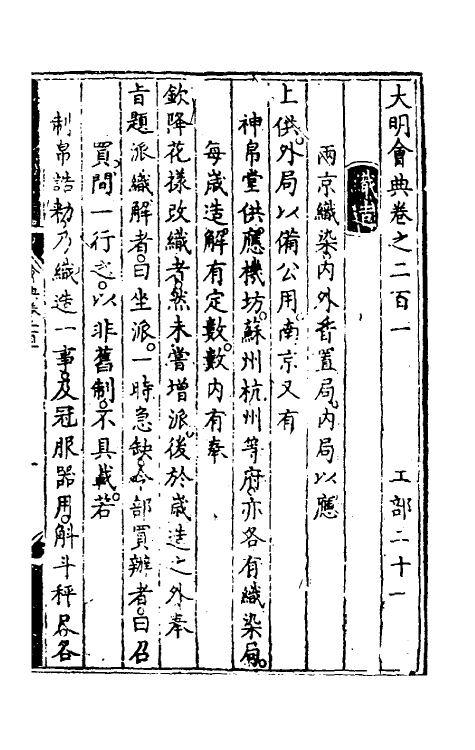 大明會典卷之二百一　工部二十一
織造
兩京織染。内外皆置局。内局以應
上供。外局以備公用。南京又有
神帛堂供應機坊。蘇州杭州等府。亦各有織染局。
每歲造解有定數。數内有奉
欽降花樣改織者。然未嘗增派。後於歲造之外奉
旨題派織解者。曰坐派。一時急缺。令部買辦者。曰召
買。間一行之。以非舊制。不具載。若
制帛誥勑。乃織造一事。及冠服器用。斛斗秤尺。各